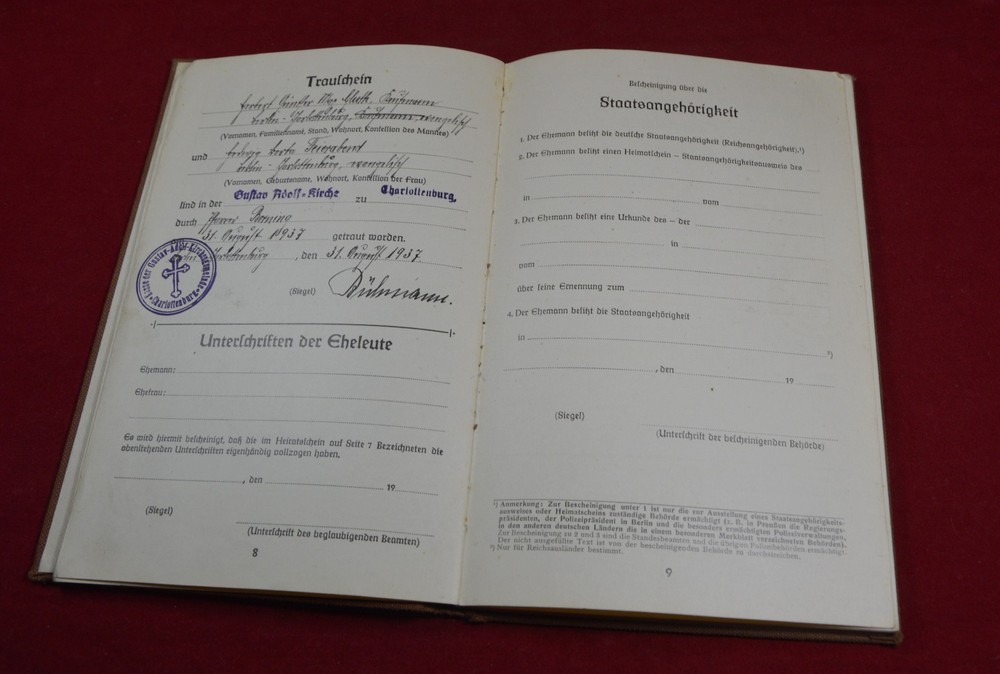 Trauschein
Herbert Günter Max Kaufmann
Berlin - Charlottenburg, evangelisch
(Vornamen, Familienname, Stand, Wohnort, Konfession des Mannes)
und Hedwig Berta Feierabend
Berlin - Charlottenburg, evangelisch
(Vornamen, Geburtsname, Wohnort, Konfession der Frau)
sind in der Gustav Adolf-Kirche zu Charlottenburg,
durch Pfarrer
31. August 1937 getraut worden.
Charlottenburg, den 31. August 1937.
(Siegel)
Unterschriften der Eheleute
Ehemann:
Ehefrau:
Es wird hiermit bescheinigt, daß die im Heimatschein auf Seite 7 Bezeichneten die
obenstehenden Unterschriften eigenhändig vollzogen haben.
, den 19
(Siegel)
(Unterschrift des beglaubigenden Beamten)
8
Bescheinigung über die
Staatsangehörigkeit
1. Der Ehemann besitzt die deutsche Staatsangehörigkeit (Reichsangehörigkeit).¹)
2. Der Ehemann besitzt einen Heimatschein – Staatsangehörigkeitsausweis des
in vom
3. Der Ehemann besitzt eine Urkunde des – der
in
vom
über seine Ernennung zum
4. Der Ehemann besitzt die Staatsangehörigkeit
in ²)
, den 19
(Siegel)
(Unterschrift der bescheinigenden Behörde)
¹) Anmerkung: Zur Bescheinigung unter 1 ist nur die zur Ausstellung eines Staatsangehörigkeits-
ausweises oder Heimatscheins zuständige Behörde ermächtigt (z. B. in Preußen die Regierungs-
präsidenten, der Polizeipräsident in Berlin und die besonders ermächtigten Polizeiverwaltungen,
in den anderen deutschen Ländern die in einem besonderen Merkblatt verzeichneten Behörden).
Zur Bescheinigung zu 2 und 3 sind die Standesbeamten und die übrigen Polizeibehörden ermächtigt.
Der nicht ausgefüllte Text ist von der bescheinigenden Behörde zu durchstreichen.
²) Nur für Reichsausländer bestimmt.
9